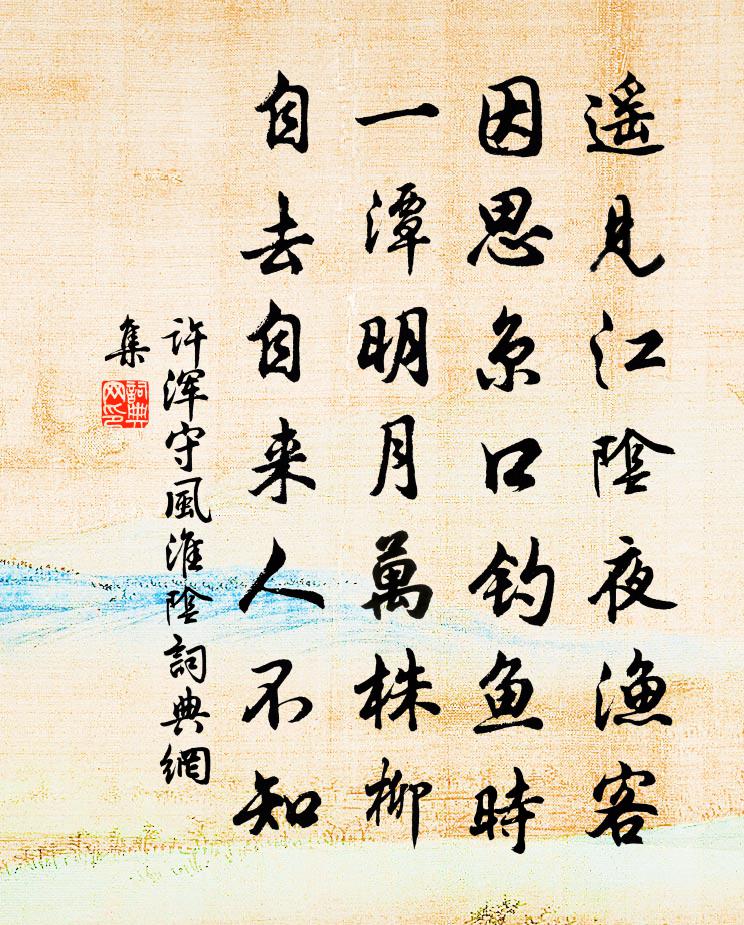 遥見江陰夜渔客
因思京口钓鱼時
一潭明月萬株柳
自去自来人不知
许浑守風淮陰詞典網
集
詞典网印